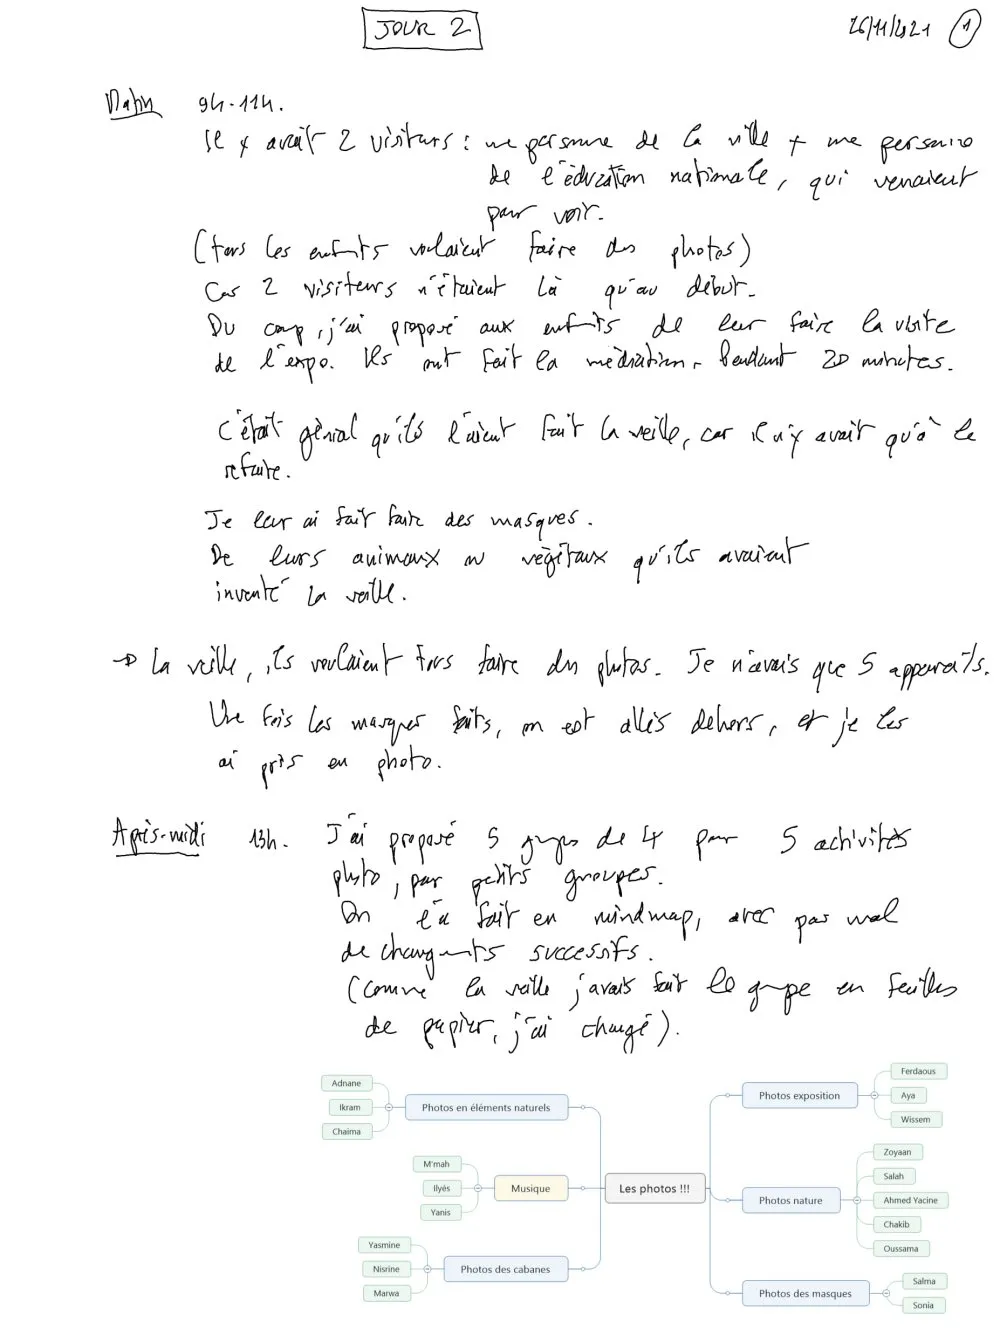 JOUR 2
26/11/2021 1
Matin 9h-11h.
Il y avait 2 visiteurs : une personne de la ville + une personne
de l'éducation nationale, qui venaient
pour voir.
(tous les enfants voulaient faire des photos)
Ces 2 visiteurs n'étaient là qu'au début.
Du coup, j'ai proposé aux enfants de leur faire la visite
de l'expo. Ils ont fait la médiation. Pendant 20 minutes.
C'était génial qu'ils l'aient fait la veille, car il n'y avait qu'à le
refaire.
Je leur ai fait faire des masques.
De leurs animaux ou végétaux qu'ils avaient
inventé la veille.
→ La veille, ils voulaient tous faire des photos. Je n'avais que 5 appareils.
Une fois les masques faits, on est allés dehors, et je les
ai pris en photo.
Après-midi 13h. J'ai proposé 5 groupes de 4 pour 5 activités
photo, par petits groupes.
On l'a fait en mindmap, avec pas mal
de changements successifs.
(comme la veille j'avais fait le groupe en feuilles
de papier, j'ai changé).
Les photos !!!
Photos en éléments naturels
Adnane
Ikram
Chaima
Musique
M'mah
Ilyès
Yanis
Photos des cabanes
Yasmine
Nisrine
Marwa
Photos exposition
Ferdaous
Aya
Wissem
Photos nature
Zoyaan
Salah
Ahmed Yacine
Chakib
Oussama
Photos des masques
Salma
Sonia